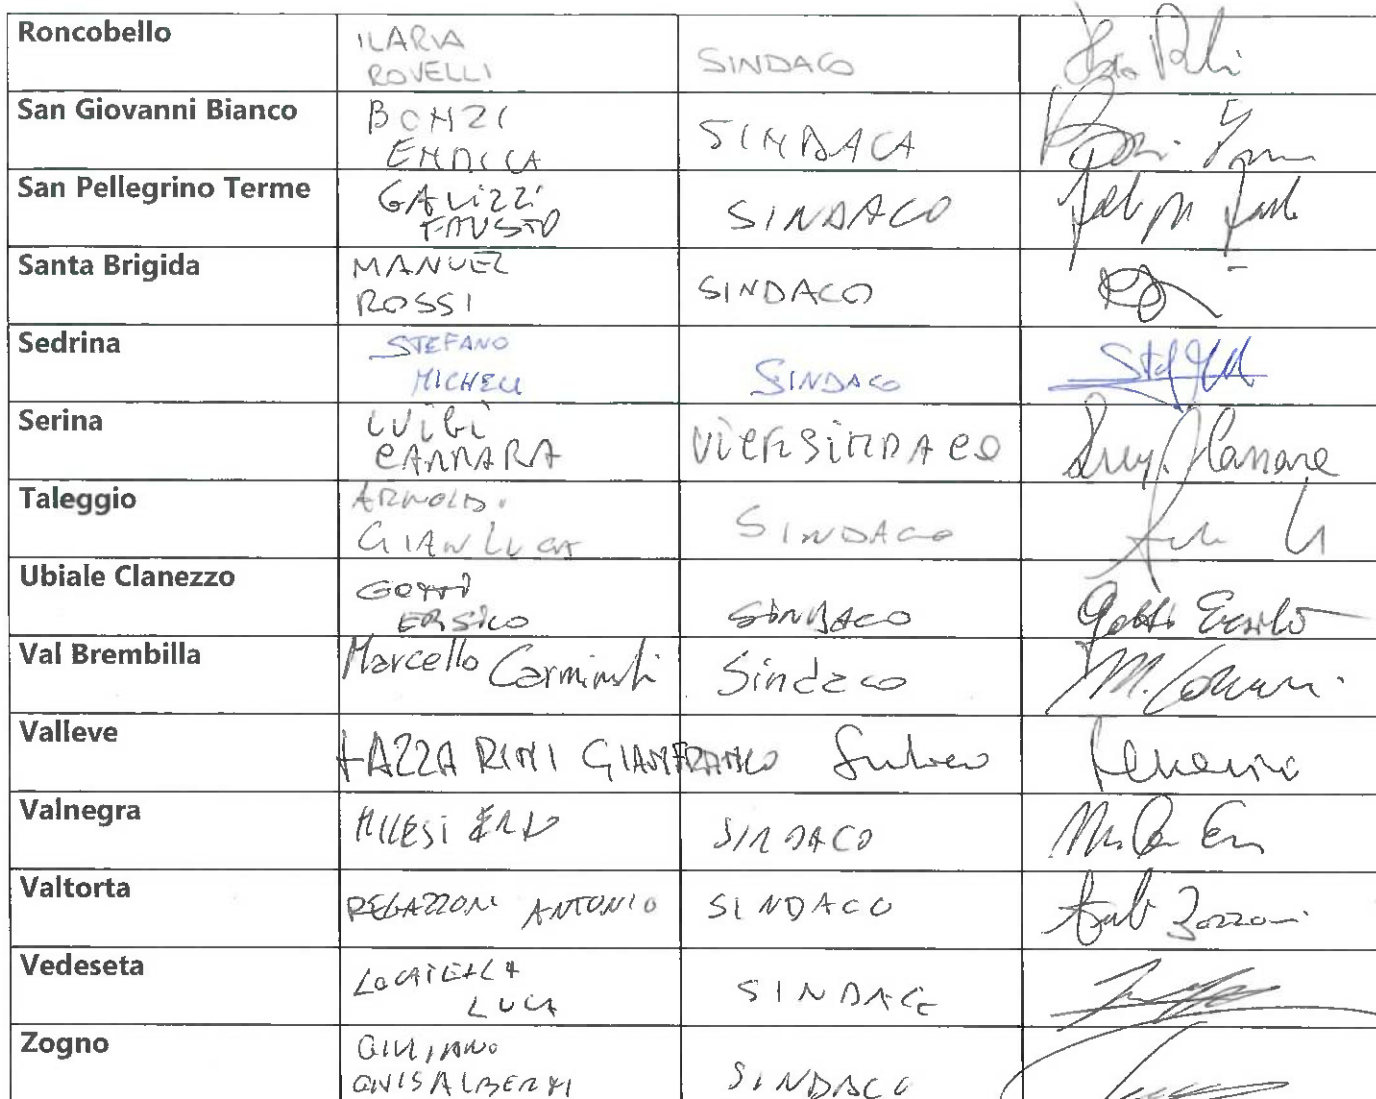 Roncobello ILARIA ROVELLI SINDACO
San Giovanni Bianco BONZI ENRICA SINDACA
San Pellegrino Terme GALIZZI FAUSTO SINDACO
Santa Brigida MANUEL ROSSI SINDACO
Sedrina STEFANO MICHELI SINDACO
Serina LUIGI CARRARA VICESINDACO
Taleggio ARNOLDI GIANLUCA SINDACO
Ubiale Clanezzo GOTTI ERSILIO SINDACO Gotti Ersilio
Val Brembilla Marcello Carminati Sindaco
Valleve LAZZARINI GIANFRANCO Sindaco
Valnegra MILESI SINDACO
Valtorta REGAZZONI ANTONIO SINDACO
Vedeseta LOCATELLI LUCA SINDACO
Zogno GIULIANO GHISALBERTI SINDACO